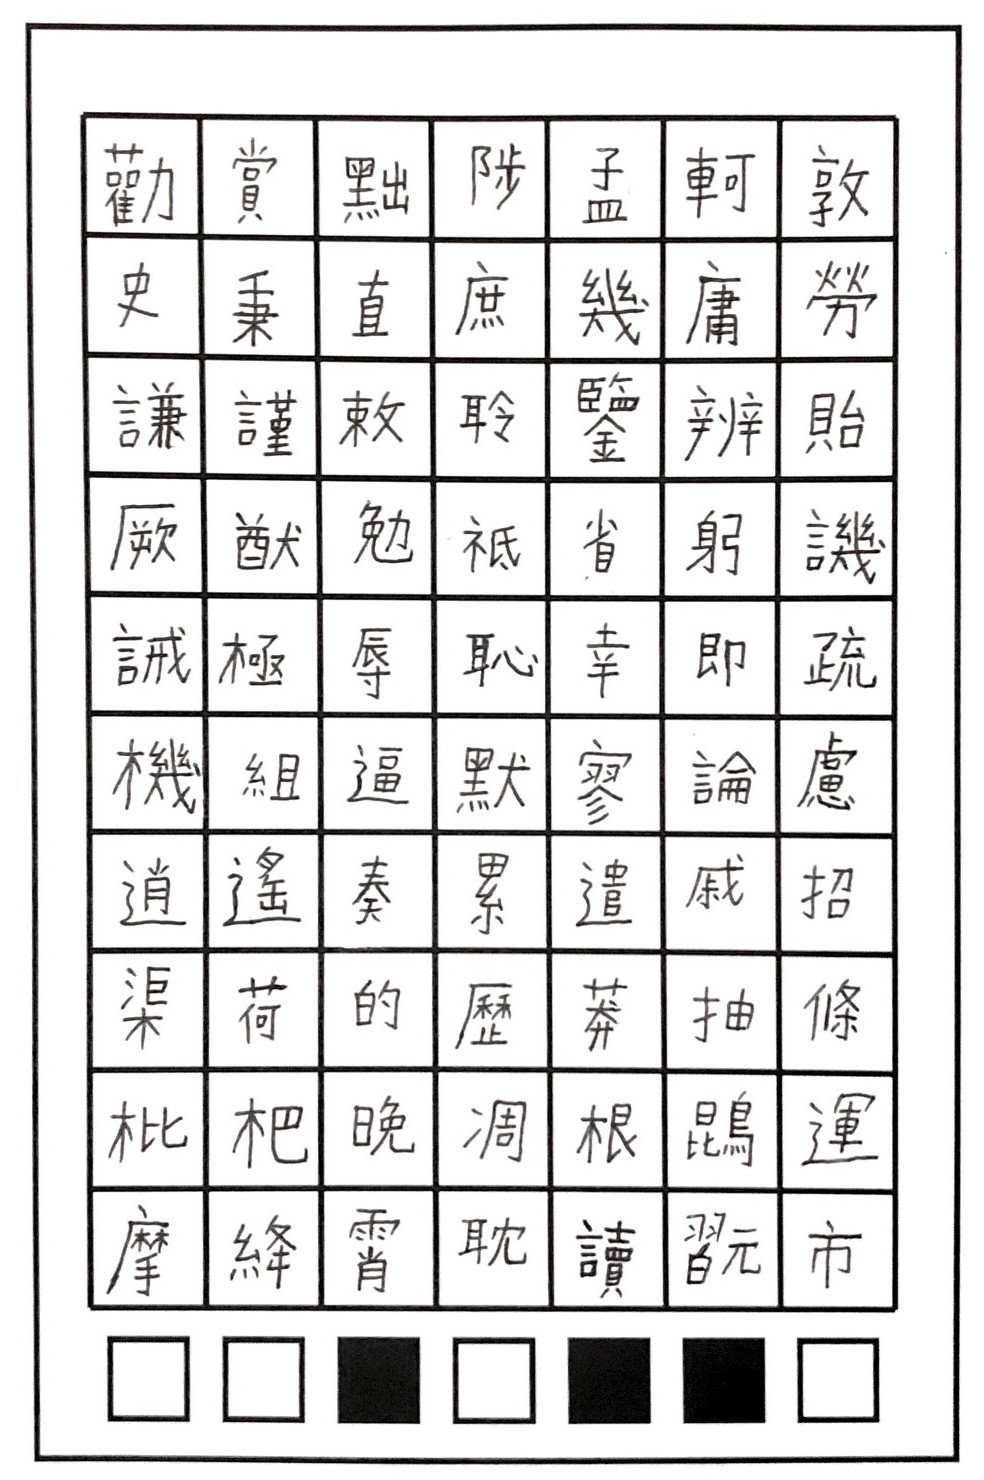 勸賞黜陟孟軻敦
史秉直庶幾庸勞
謙謹敕聆鑒辨貽
厥猷勉祗省躬譏
誡極辱恥幸即疏
機組逼默寥論慮
逍遙奏累遣戚招
渠荷的歷莽抽條
枇杷晚凋根鵾運
摩絳霄耽讀翫市